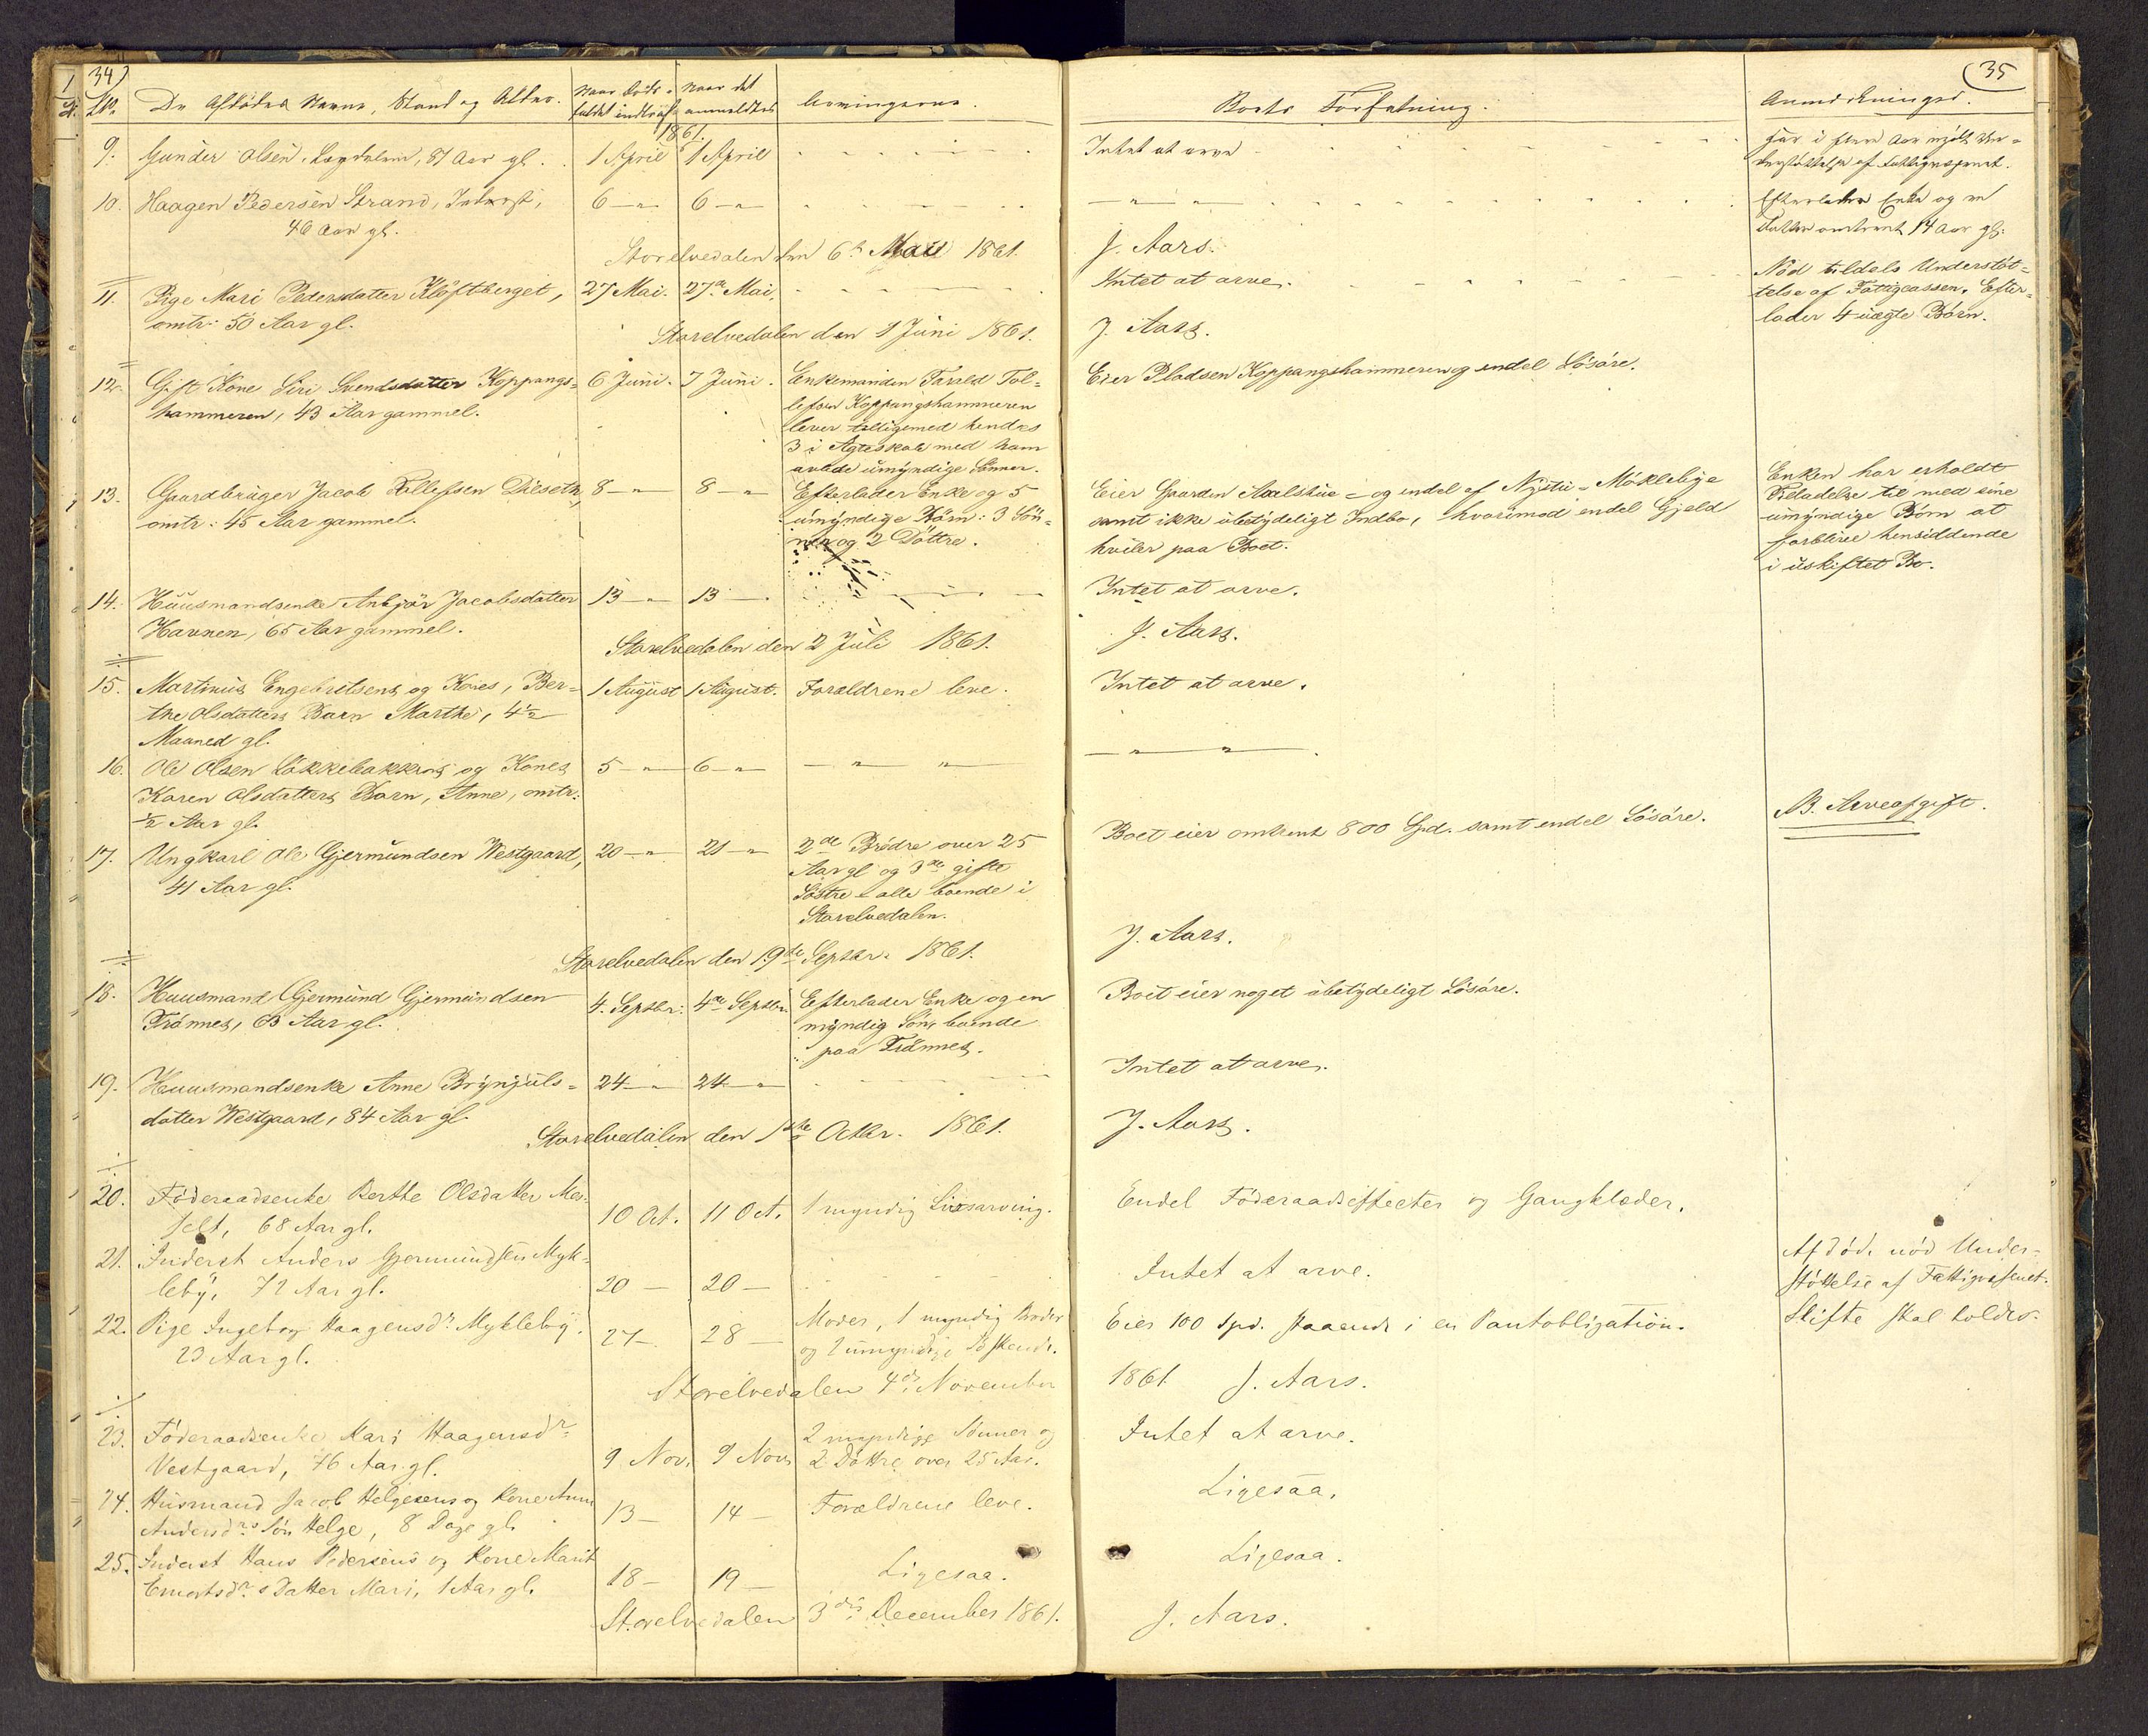 34)
No. De Afdødes Navne, Stand og Alder.
Naar Døds-
faldet indtraf
Naar det
anmeldtes
Arvingerne.
1861.
9. Gunder Olsen 87 Aar gl. 1 April 1 April
10. Haagen Pedersen Strand, Inderst, 6 — " 6 — "
46 Aar gl.
Storelvedalen den 6te Mai 1861.
11. Pige Mari Pedersdatter Kløftberget, 27 Mai. 27de Mai.
omtr: 50 Aar gl.
Storelvedalen den 1 Juni 1861.
12. Gift Kone Siri Svendsdatter Koppangs= 6 Juni. 7 Juni. Enkemanden Tarald Tol=
hammeren, 43 Aar gammel. lefsen Koppangshammeren
lever tilligemed hendes
3 i Ægteskab med ham
avlede umyndige Sønner.
13. Gaardbruger Jacob Tollefsen Diseth, 8 — " 8 — " Efterlader Enke og 5
omtr: 45 Aar gammel. umyndige Børn: 3 Søn=
ner og 2 Døttre.
14. Huusmandsenke Anbjør Jacobsdatter 13 — " 13 — "
Havnen, 65 Aar gammel.
Storelvedalen den 2 Juli 1861.
15. Martinus Engebretsens og Kones, Ber= 1 August 1 August. Forældrene leve.
the Olsdatters Barn Marthe, 4½
Maaned gl.
16. Ole Olsen Løkkebakkens og Kones 5 — " 6 — " — " "
Karen Olsdatters Barn, Anne, omtr:
½ Aar gl.
17. Ungkarl Ole Gjermundsen Westgaard, 20 — " 21 — " 2de Brødre over 25
41 Aar gl. Aar gl og 3de gifte
Søstre – alle boende i
Storelvedalen.
Storelvedalen den 19de Septbr. 1861.
18. Huusmand Gjermund Gjermundsen 4. Septbr: 4de Septbr. Efterlader Enke og en
Trønnes, 63 Aar gl. myndig Søn, boende
paa Trønnes.
19. Huusmandsenke Anne Brynjuls= 24 — " 24 — "
datter Westgaard, 84 Aar gl.
Storelvedalen den 1ste Octbr. 1861.
20. Føderaadsenke Berthe Olsdatter Me=
felt, 68 Aar gl. 10 Oct. 11 Oct. 1 myndig Livsarving.
21. Inderst Anders Gjermundsen Myk=
leby, 72 Aar gl. 20 — 20 —
22. Pige Ingeborg Haagensdr. Mykleby. 27 — 28 — Moder, 1 myndig Broder
23 Aar gl. og 2 umyndige Søskende.
Storelvedalen 4de November
23. Føderaadsenke Kari Haagensdr. 2 myndige Sønner og
Vestgaard, 76 Aar gl. 9 Nov. 9 Nov. 2 Døttre over 25 Aar.
24. Husmand Jacob Helgesens og Kone Anne
Andersdr.s Søn Helge, 8 Dage gl. 13 — 14 — Forældrene leve.
25. Inderst Hans Pedersens og Kone Marit
Emertsdr.s Datter Mari, 1 Aar gl. 18 — 19 — Ligesaa.
Storelvedalen 3die December 1861.
(35
Boets Forfatning.
Anmærkninger.
Intet at arve
har i flere Aar nydt Un=
derstøttelse af Fattigvæsenet.
— " — " —
Efterlader Enke og en
Datter omtrent 14 Aar gl.
J. Aars.
Intet at arve.
Nød tildels Understøt=
telse af Fattigcassen. Efter=
lader 4 uægte Børn.
J. Aars.
Eier Pladsen Koppangshammeren og endel Løsøre.
Eier Gaarden Axelstue – og endel af Nystu – Møklebye
samt ikke ubetydeligt Indbo, hvorimod endel Gjeld
hviler paa Boet.
Enken har erholdt
Tilladelse til med sine
umyndige Børn at
forblive hensiddende
i uskiftet Bo.
Intet at arve.
J. Aars.
Intet at arve.
— " — " —
Boet eier omtrent 800 Spd. samt endel Løsøre.
NB. Arveafgift.
J. Aars.
Boet eier noget ubetydeligt Løsøre.
Intet at arve.
J. Aars.
Endel Føderaadseffecter og Gangklæder.
Intet at arve.
Afdøde nød Under=
støttelse af Fattigvæsenet.
Eier 100 Spd. staaende i en Pantobligation.
Skifte skal holdes.
1861 J. Aars.
Intet at arve.
Ligesaa.
Ligesaa.
J. Aars.